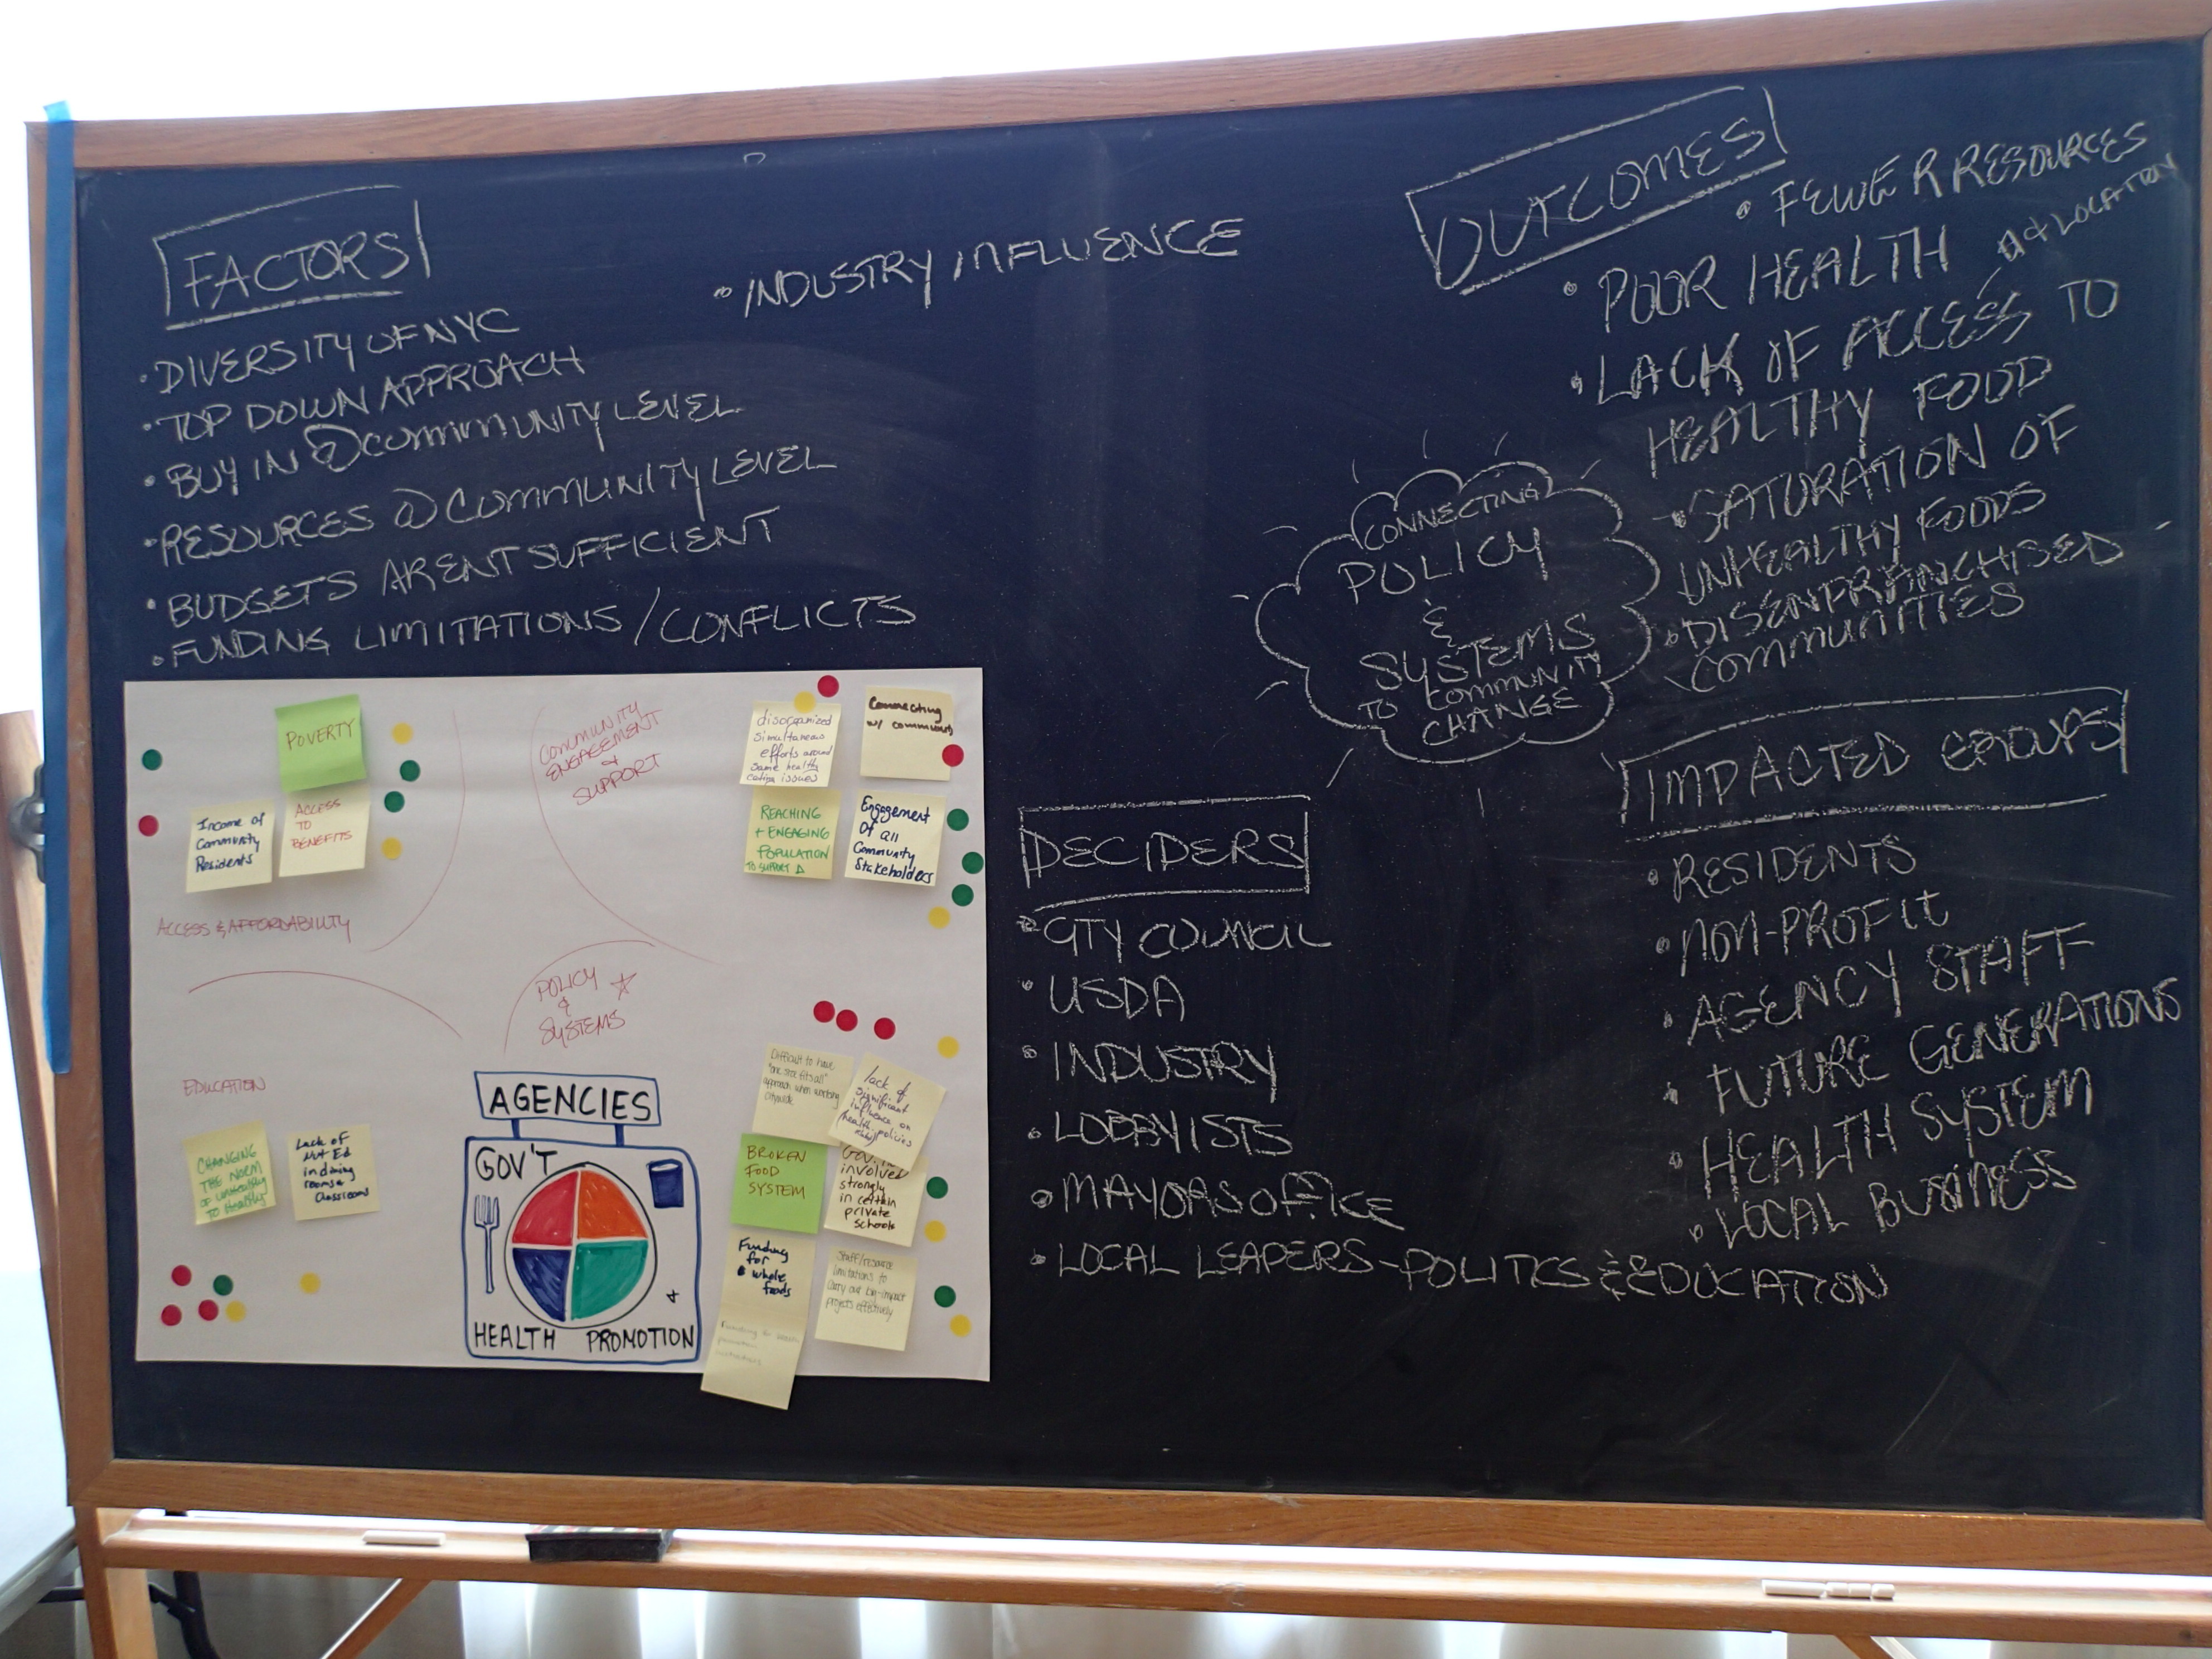 FACTORS
• DIVERSITY OF NYC
• TOP DOWN APPROACH
• BUY IN @ COMMUNITY LEVEL
• RESOURCES @ COMMUNITY LEVEL
• BUDGETS ARENT SUFFICIENT
• FUNDING LIMITATIONS / CONFLICTS
• INDUSTRY INFLUENCE
OUTCOMES
• FEWER RESOURCES
• POOR HEALTH
LOCATION
• LACK OF ACCESS TO
HEALTHY FOOD
• SATURATION OF
UNHEALTHY FOODS
• DISENFRANCHISED
COMMUNITIES
CONNECTING
POLICY
&
SYSTEMS
TO COMMUNITY
CHANGE
IMPACTED GROUPS
• RESIDENTS
• NON-PROFIT
• AGENCY STAFF
• FUTURE GENERATIONS
• HEALTH SYSTEM
• LOCAL BUSINESS
DECIDERS
• CITY COUNCIL
• USDA
• INDUSTRY
• LOBBYISTS
• MAYORS OFFICE
• LOCAL LEADERS - POLITICS & EDUCATION
POVERTY
Income of
Community
Residents
ACCESS
TO
BENEFITS
ACCESS & AFFORDABILITY
COMMUNITY
ENGAGEMENT
+
SUPPORT
disorganized
simultaneous
efforts around
same health
eating issues
Connecting
w/ community
REACHING
+ ENGAGING
POPULATION
TO SUPPORT Δ
Engagement
of all
Community
Stakeholders
EDUCATION
CHANGING
THE NORM
OF unhealthy
TO Healthy
Lack of
Nut Ed
in dining
rooms &
Classrooms
POLICY
&
SYSTEMS
AGENCIES
GOV'T
+
HEALTH PROMOTION
Difficult to have
"one size fits all"
approach when working
citywide
lack of
significant
influence on
health policies
BROKEN
FOOD
SYSTEM
Gov.
involved
strongly
in certain
private
schools
Funding
for
whole
foods
Staff/resource
limitations to
carry out big-impact
projects effectively